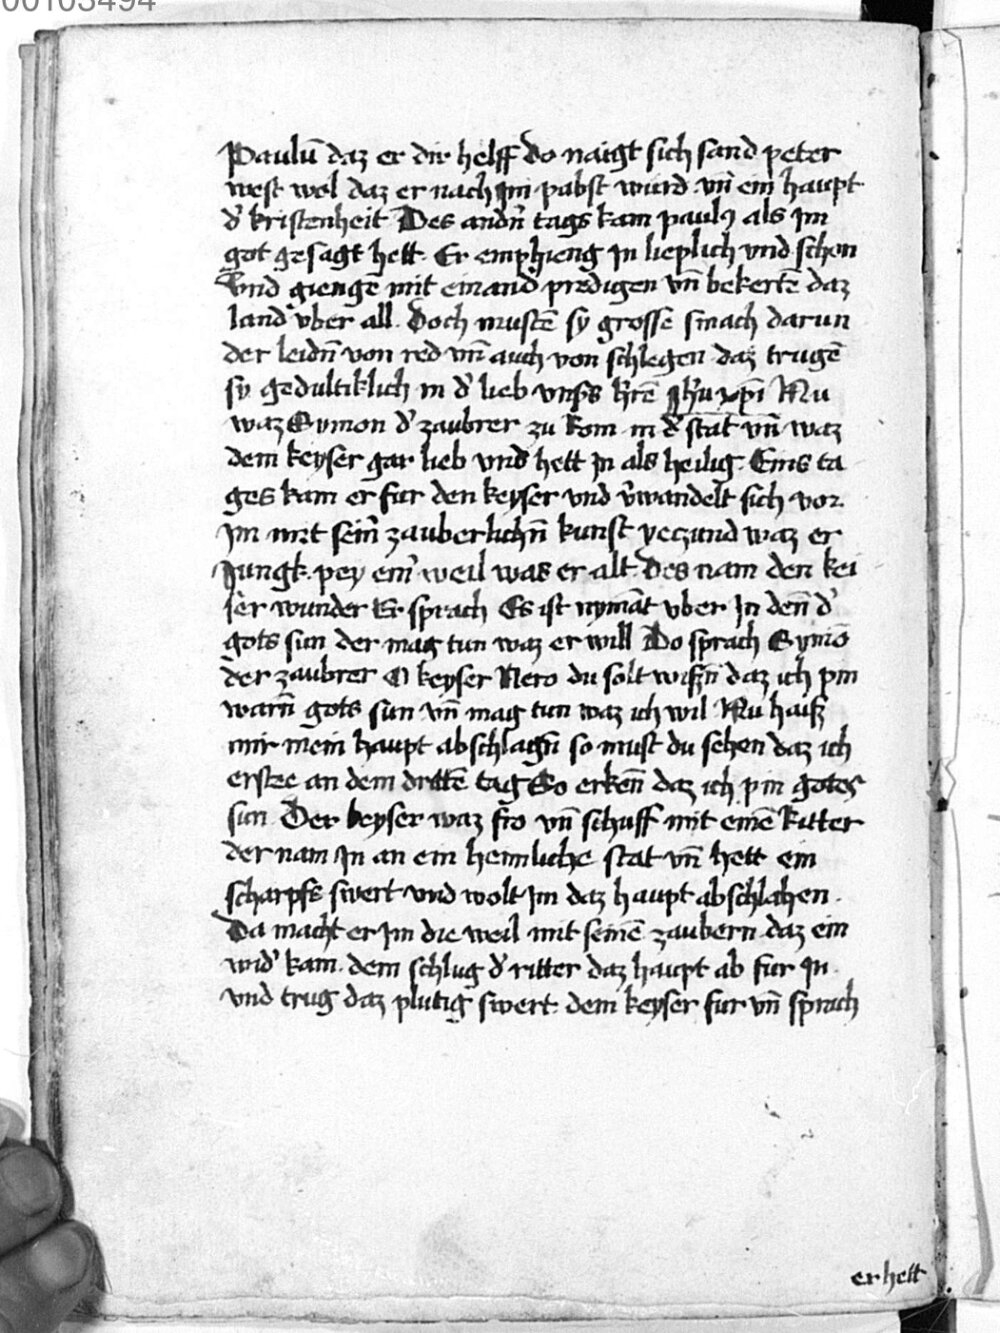 00103494
Paulū daz er dir helff Do naigt sich sand peter
west wol daz er nach jm pabst würd vn̄ ein haupt
d' kristenheit Des andn̄ tags kam paulꝰ als Im
got gesagt hett. Er emphieng Jn lieplich vnd schon
Vnd giengē mit einand' predigen vn̄ bekertē daz
land vber all. Doch mustē sy grosse smach darun
der leidn̄ von red vn̄ auch von schlegen daz trugē
sy gedultiklich in d' lieb vnsꝰs hr̄ē Jh̄u xp̄i Nu
waz Symon d' zaubrer zu kom in d' stat vn̄ waz
dem keyser gar lieb vnd hett Jn als heilig. Eins ta
ges kam er fur den keyser vnd v'wandelt sich vor.
Im mit sein̄ zauberlichn̄ kunst yeczund waz er
Jungk. pey ein' weil was er alt. Des nam den kei
ser wunder Er sprach Es ist nymāt vber Jn den̄ d'
gots sun der mag tun waz er will Do sprach Symō
der zaubrer O keyser Nero du solt wißn̄ daz ich pin
warn̄ gots sun vn̄ mag tun waz ich wil Nu haiß
mir mein haupt abschlagn̄ so must du sehen daz ich
erstee an dem drittē tag So erken̄ daz ich pin gotes
sun. Der keyser waz fro vn̄ schuff mit einē Ritter
der nam Jn an ein heimliche stat vn̄ hett ein
scharpfs swert vnd wolt Im daz haupt abschlahen.
Da macht er Im die weil mit seinē zaubern daz ein
wid' kam. dem schlug d' ritter daz haupt ab fur Jn.
vnd trug daz plutig swert. dem keyser fur vn̄ sprach
er hett